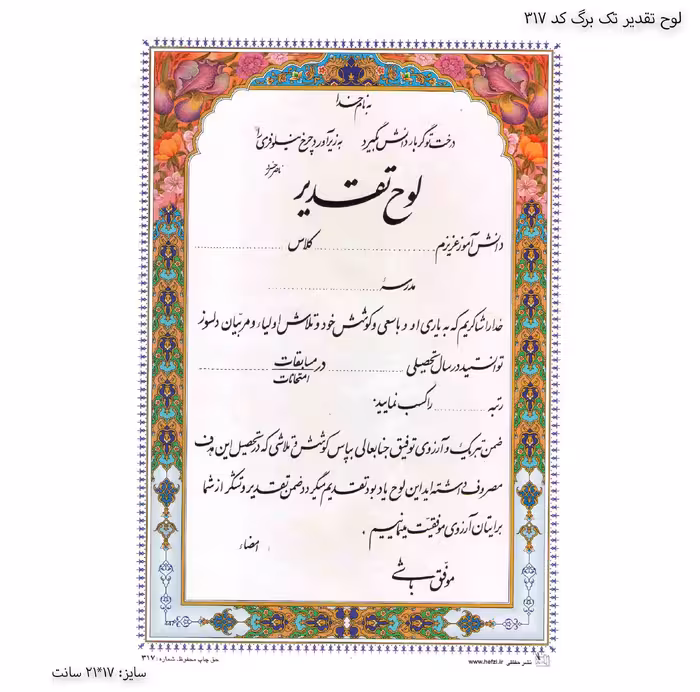 لوح تقدیر تک برگ کد ۳۱۷
به نام خدا
درخت تو گر بار دانش بگیرد به زیر آورد چرخ نیلوفری را
ناصر خسرو
لوح تقدیر
دانش آموز عزیزم ........ کلاس ........
مدرسهٔ ........
خدا را شاکریم که به یاری او و با سعی و کوشش خود و تلاش اولیاء و مربیان دلسوز
توانستید در سال تحصیلی ........ در مسابقات
امتحانات
رتبه ........ را کسب نمایید.
ضمن تبریک و آرزوی توفیق جنابعالی بپاس کوشش و تلاشی که در تحصیل این هدف
مصروف داشته اید این لوح یادبود تقدیم میگردد ضمن تقدیر و تشکر از شما
برایتان آرزوی موفقیت مینماییم .
امضاء
موفق باشی
نشر حفظی www.hefzi.ir
حق چاپ محفوظ. شماره: ۳۱۷
سایز: ۱۷*۲۱ سانت